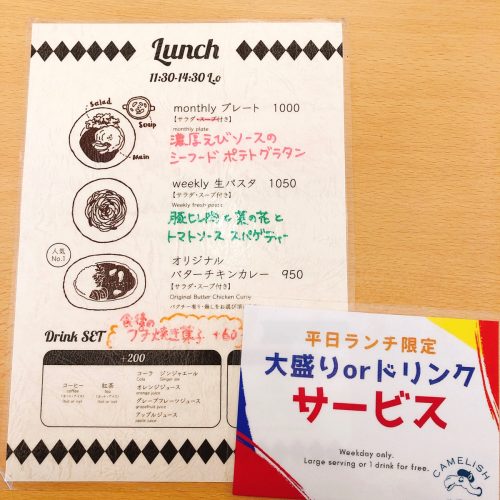 Lunch
11:30-14:30 Lo
Salad
Soup
Main
monthly プレート 1000
【サラダ・スープ付き】
monthly plate
濃厚えびソースの
シーフード ポテトグラタン
weekly 生パスタ 1050
【サラダ・スープ付き】
Weekly fresh pasta
豚ヒレ肉と菜の花と
トマトソース スパゲティー
人気
No.1
オリジナル
バターチキンカレー 950
【サラダ・スープ付き】
Original Butter Chicken Curry
Drink SET
食後の
プチ焼き菓子 +60
+200
コーヒー
coffee
(ホット・アイス)
Hot or cold
紅茶
tea
(ホット・アイス)
Hot or cold
コーラ ジンジャエール
Cola Ginger ale
オレンジジュース
orange juice
グレープフルーツジュース
grapefruit juice
アップルジュース
apple juice
平日ランチ限定
大盛りorドリンク
サービス
Weekday only.
Large serving or 1 drink for free.
CAMELISH